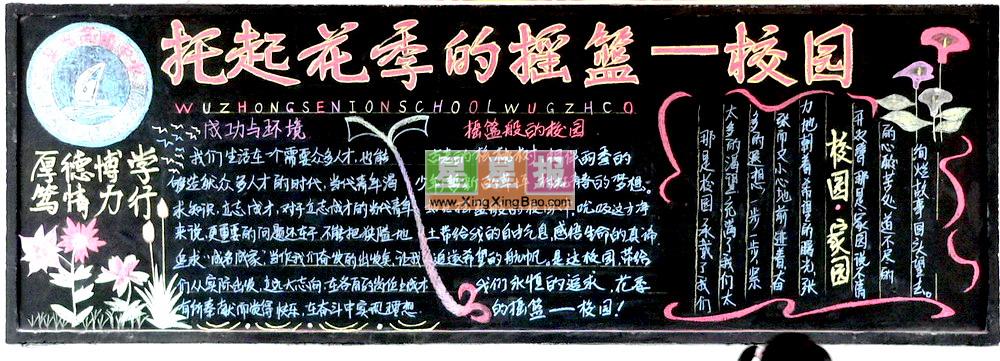 托起花季的摇篮—校园
WUZHONGSENIONSCHOOLWUGZHCO
厚德博学
笃情力行
成功与环境
我们生活在一个需要众多人才,也能
够造就众多人才的时代,当代青年渴
求知识,立志成才,对于立志成才的当代青年
来说,更重要的问题还在于,不能把狭隘地
追求"成名成家"当作我们奋发的出发点,让我
们从实际出发,立大志向,在各自的岗位上成才
有所奉献而觉得快乐,在奋斗中实现理想.
摇篮般的校园
的梦想。
土带给我的自由气息,感悟生命的真谛
追逐希望的帆帆,是这校园,带给
我们永恒的追求,花季
的摇篮——校园!
星星报
www.XingXingBao.com
校园·家园
绚烂故事回头望去。
的心酸苦处道不尽的
开交臂,那是家园,说不离
力地刺着希望之曙光,张
张而又小心地前进着奋
多的遐想,一步一步紧
太多的渴望,充满了我们太
那是校园,承载了我们